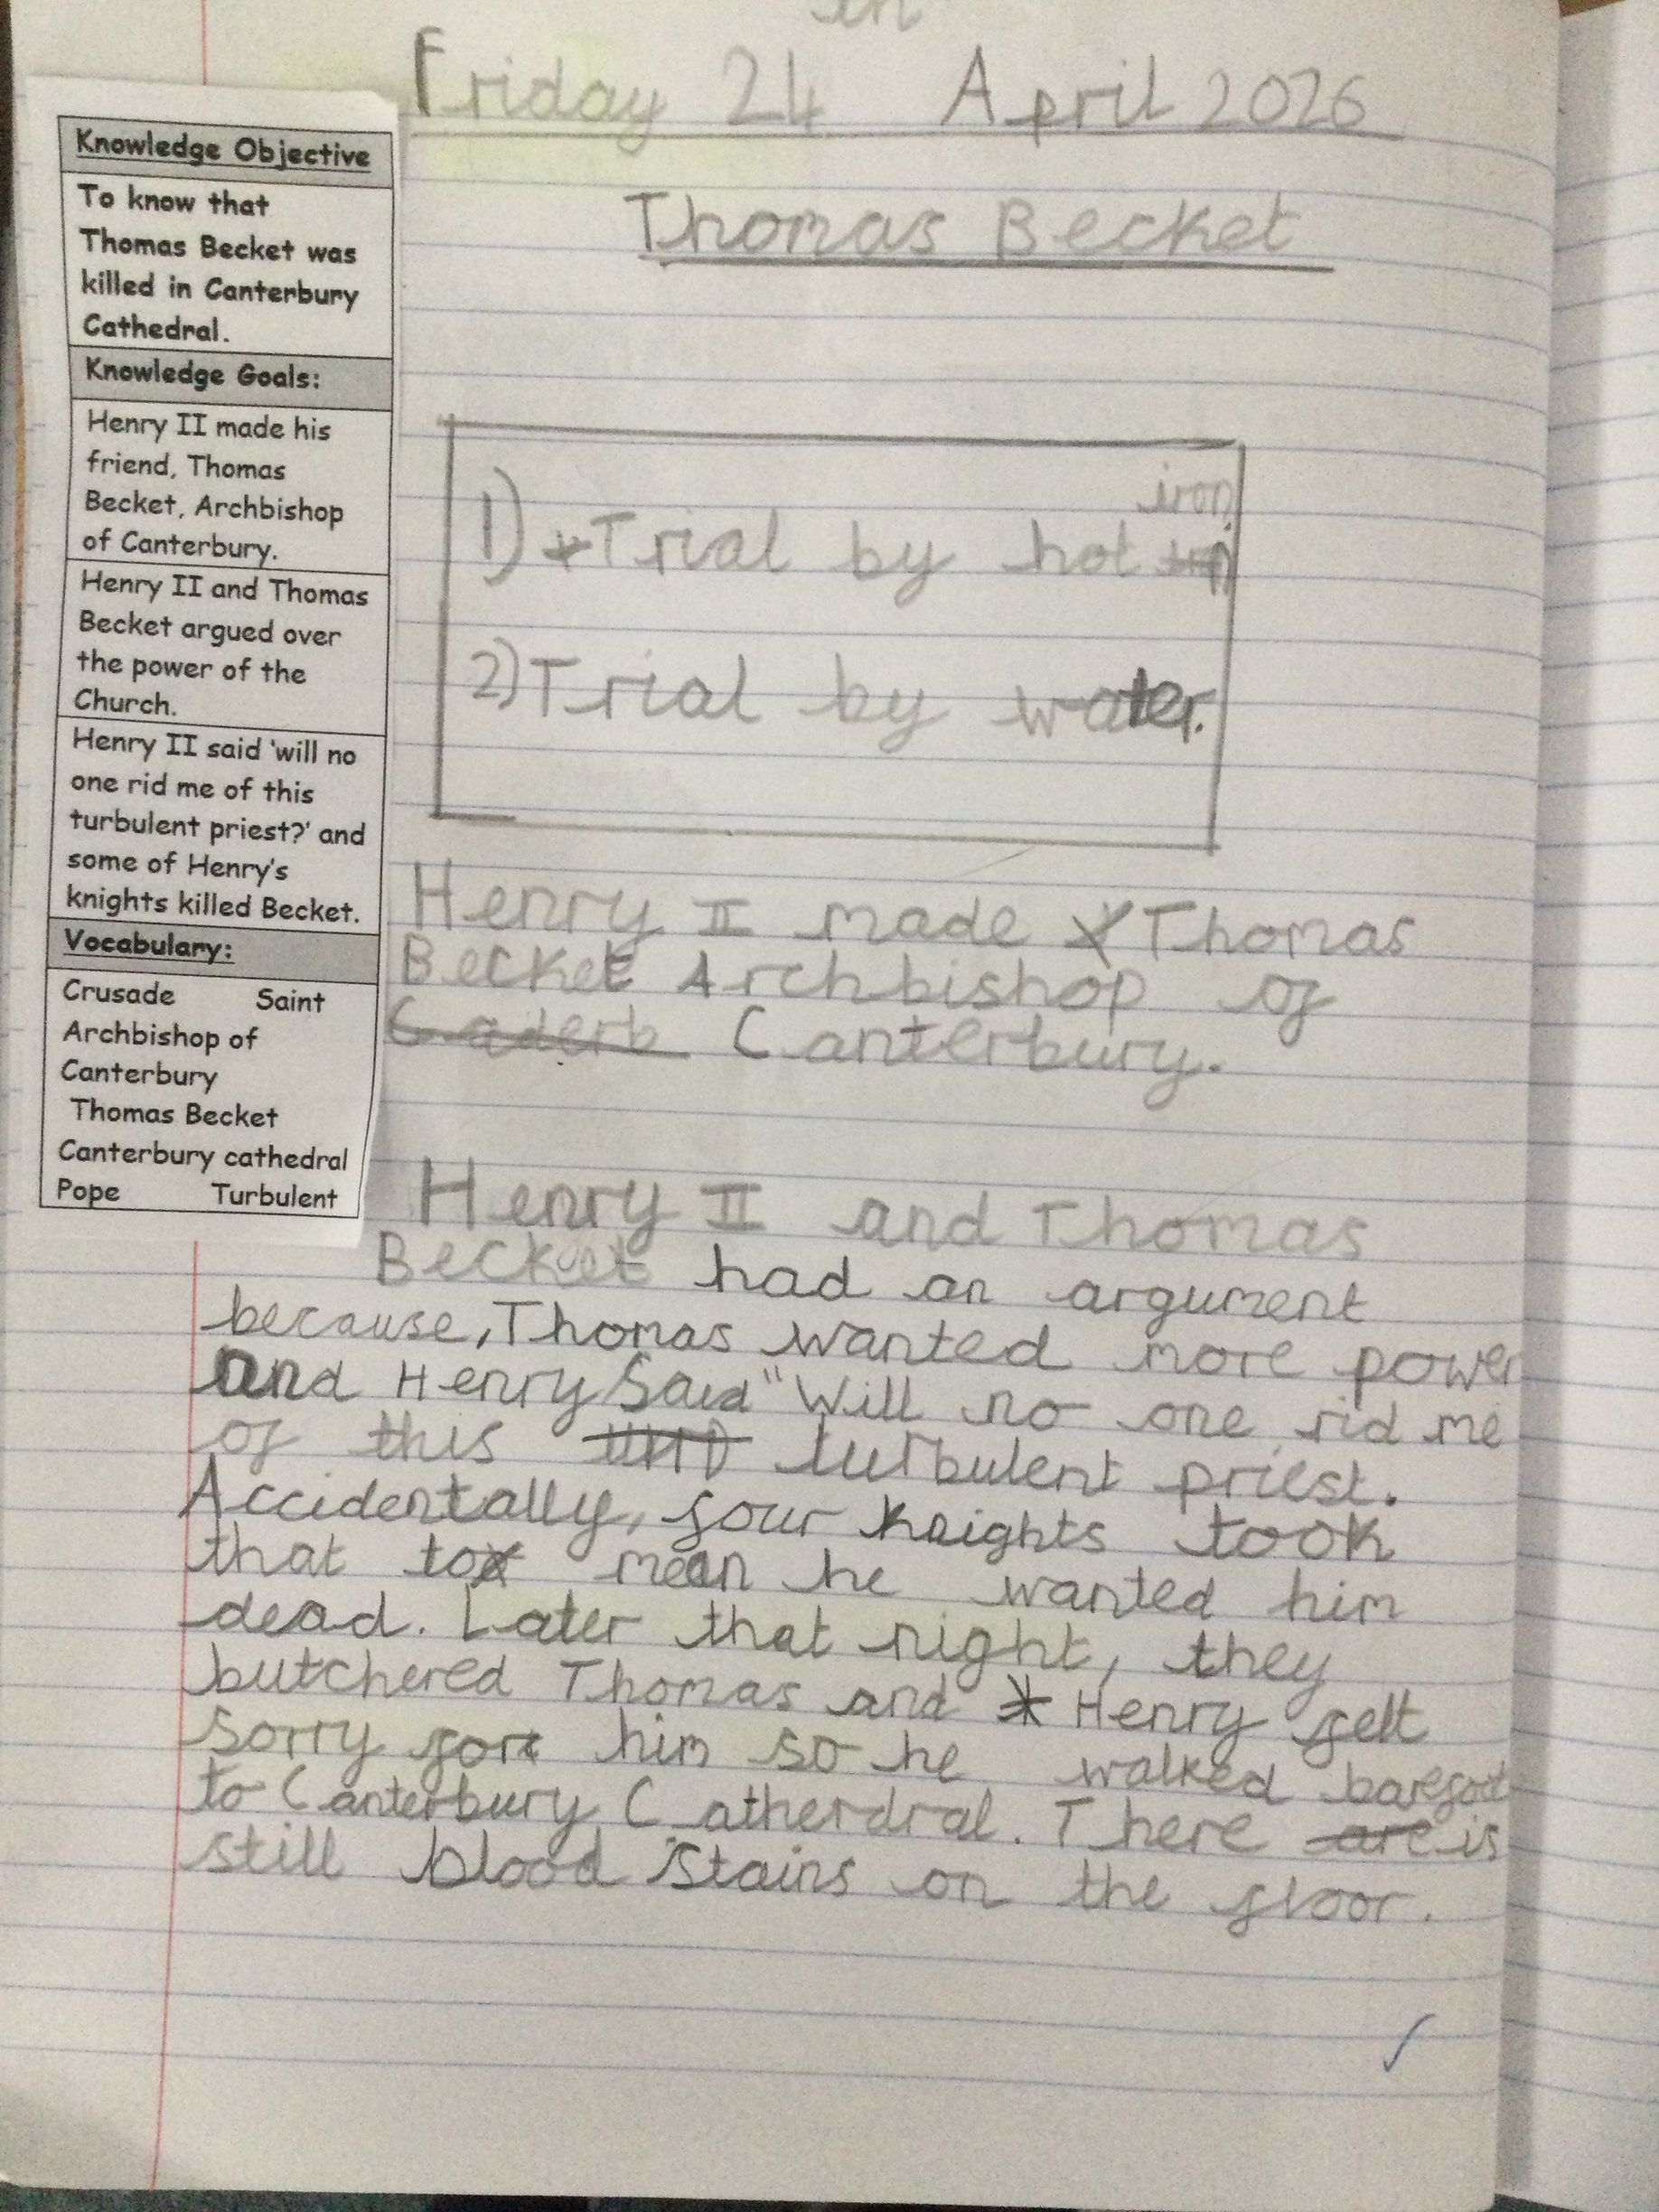 Friday 24 April 2026
Thomas Becket
Knowledge Objective
To know that
Thomas Becket was
killed in Canterbury
Cathedral.
Knowledge Goals:
Henry II made his
friend, Thomas
Becket, Archbishop
of Canterbury.
Henry II and Thomas
Becket argued over
the power of the
Church.
Henry II said 'will no
one rid me of this
turbulent priest?' and
some of Henry's
knights killed Becket.
Vocabulary:
Crusade Saint
Archbishop of
Canterbury
Thomas Becket
Canterbury cathedral
Pope Turbulent
iron
1) Trial by hot
2) Trial by water.
Henry II made Thomas
Becket Archbishop of
Caderb Canterbury.
Henry II and Thomas
Becket had an argument
because, Thomas wanted more power
and Henry Said "Will no one rid me
of this turbulent priest.
Accidentally, four knights took
that to mean he wanted him
dead. Later that night, they
butchered Thomas and Henry felt
sorry for him so he walked barefoot
to Canterbury Catherdral. There are is
still blood stains on the floor.